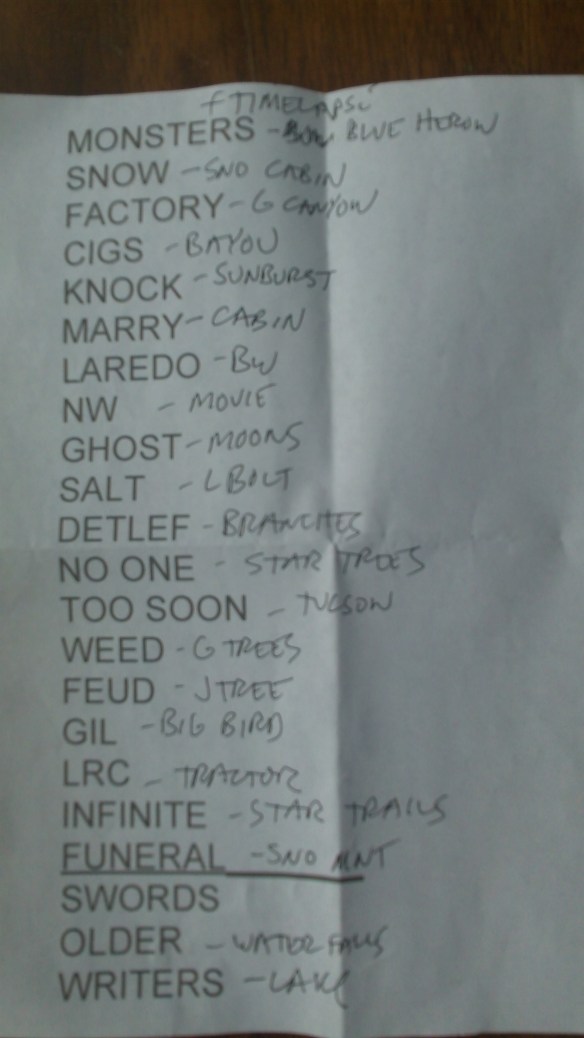 f TIMELAPSE
MONSTERS - BLUE HERON
SNOW - SNO CABIN
FACTORY - G CANYON
CIGS - BAYOU
KNOCK - SUNBURST
MARRY - CABIN
LAREDO - BW
NW - MOVIE
GHOST - MOONS
SALT - L BOLT
DETLEF - BRANCHES
NO ONE - STAR TREES
TOO SOON - TUCSON
WEED - G TREES
FEUD - J TREE
GIL - BIG BIRD
LRC - TRACTOR
INFINITE - STAR TRAILS
FUNERAL - SNO MNT
SWORDS
OLDER - WATER FALLS
WRITERS - LAKE